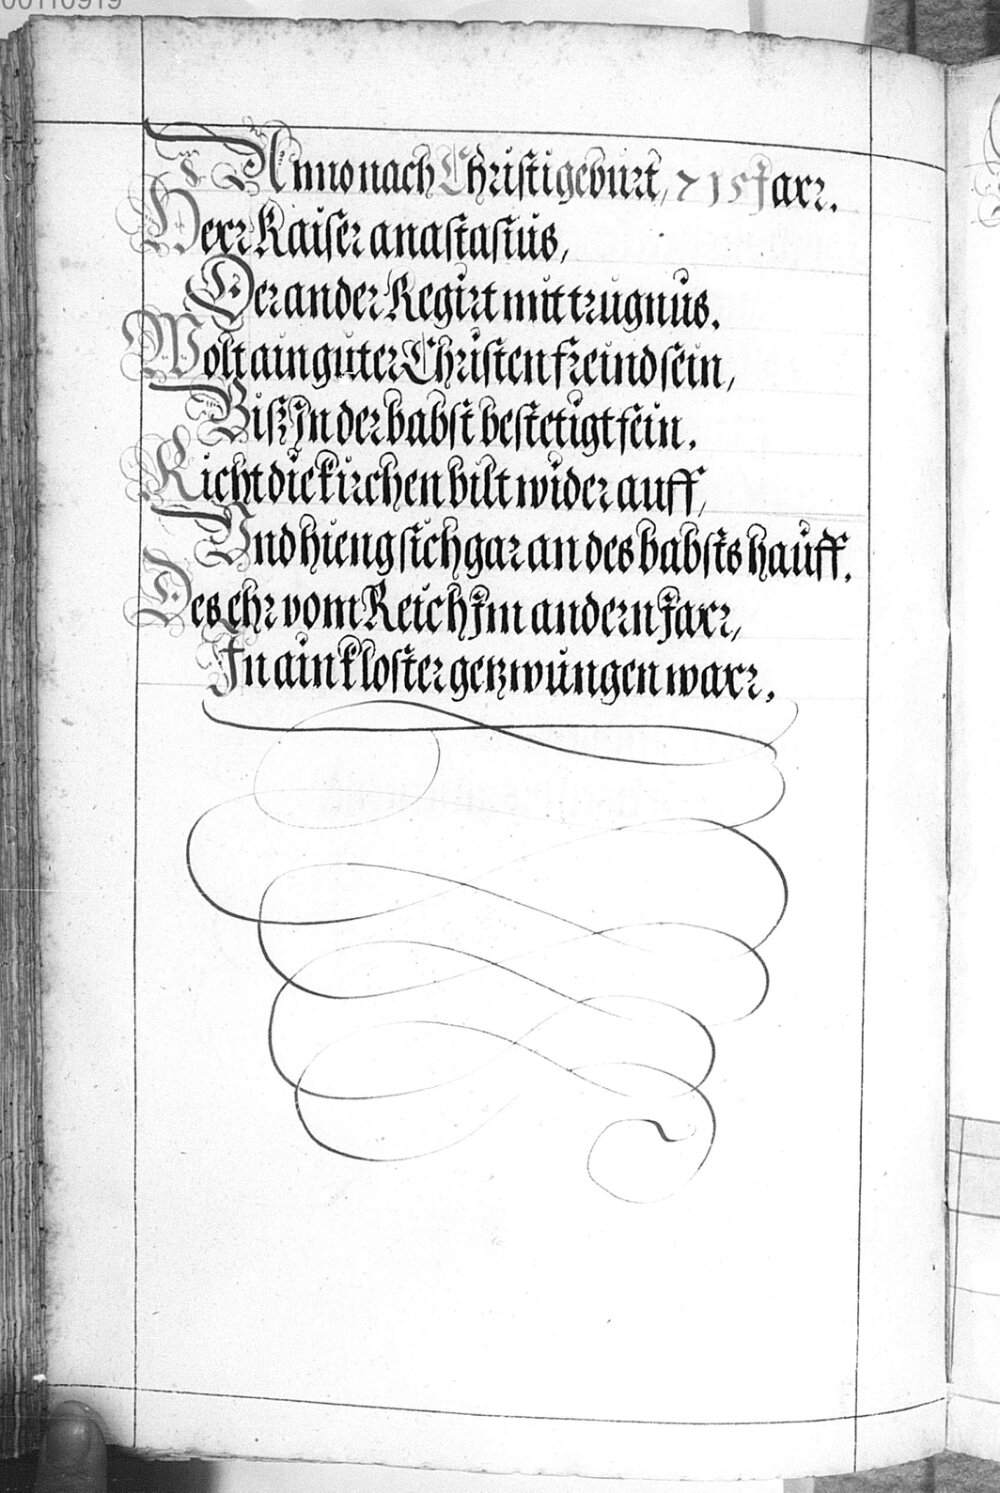 00110919
Anno nach Christi geburt, 715 Jarr.
Herr Kaiser anastasius,
Der ander Regirt mit trugnus.
Wolt ain guter Christen freind sein,
Biß In der babst bestetigt fein.
Richt die kirchen bilt wider auff,
Und hieng sich gar an des babsts hauff.
Des ehr vom Reich Im andern Jarr,
In ain kloster getzwungen warr.